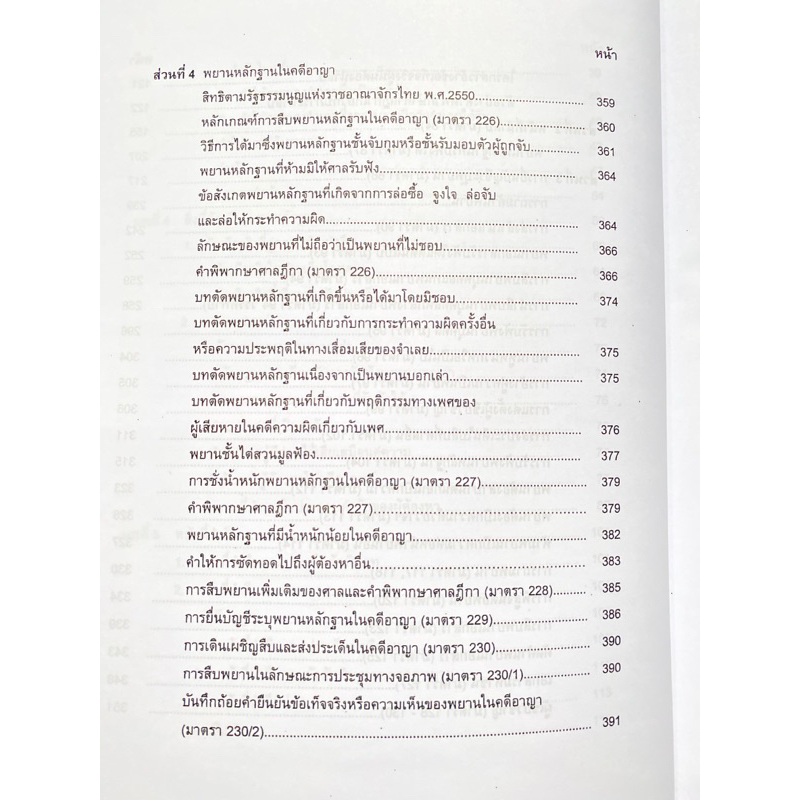 หน้า
ส่วนที่ 4 พยานหลักฐานในคดีอาญา
สิทธิตามรัฐธรรมนูญแห่งราชอาณาจักรไทย พ.ศ.2550 359
หลักเกณฑ์การสืบพยานหลักฐานในคดีอาญา (มาตรา 226) 360
วิธีการได้มาซึ่งพยานหลักฐานชั้นจับกุมหรือชั้นรับมอบตัวผู้ถูกจับ 361
พยานหลักฐานที่ห้ามมิให้ศาลรับฟัง 364
ข้อสังเกตพยานหลักฐานที่เกิดจากการล่อซื้อ จูงใจ ล่อจับ
และล่อให้กระทำความผิด 364
ลักษณะของพยานที่ไม่ถือว่าเป็นพยานที่ไม่ชอบ 366
คำพิพากษาศาลฎีกา (มาตรา 226) 366
บทตัดพยานหลักฐานที่เกิดขึ้นหรือได้มาโดยมิชอบ 374
บทตัดพยานหลักฐานที่เกี่ยวกับการกระทำความผิดครั้งอื่น
หรือความประพฤติในทางเสื่อมเสียของจำเลย 375
บทตัดพยานหลักฐานเนื่องจากเป็นพยานบอกเล่า 375
บทตัดพยานหลักฐานที่เกี่ยวกับพฤติกรรมทางเพศของ
ผู้เสียหายในคดีความผิดเกี่ยวกับเพศ 376
พยานชั้นไต่สวนมูลฟ้อง 377
การชั่งน้ำหนักพยานหลักฐานในคดีอาญา (มาตรา 227) 379
คำพิพากษาศาลฎีกา (มาตรา 227) 379
พยานหลักฐานที่มีน้ำหนักน้อยในคดีอาญา 382
คำให้การซัดทอดไปถึงผู้ต้องหาอื่น 383
การสืบพยานเพิ่มเติมของศาลและคำพิพากษาศาลฎีกา (มาตรา 228) 385
การยื่นบัญชีระบุพยานหลักฐานในคดีอาญา (มาตรา 229) 386
การเดินเผชิญสืบและส่งประเด็นในคดีอาญา (มาตรา 230) 390
การสืบพยานในลักษณะการประชุมทางจอภาพ (มาตรา 230/1) 390
บันทึกถ้อยคำยืนยันข้อเท็จจริงหรือความเห็นของพยานในคดีอาญา
(มาตรา 230/2) 391